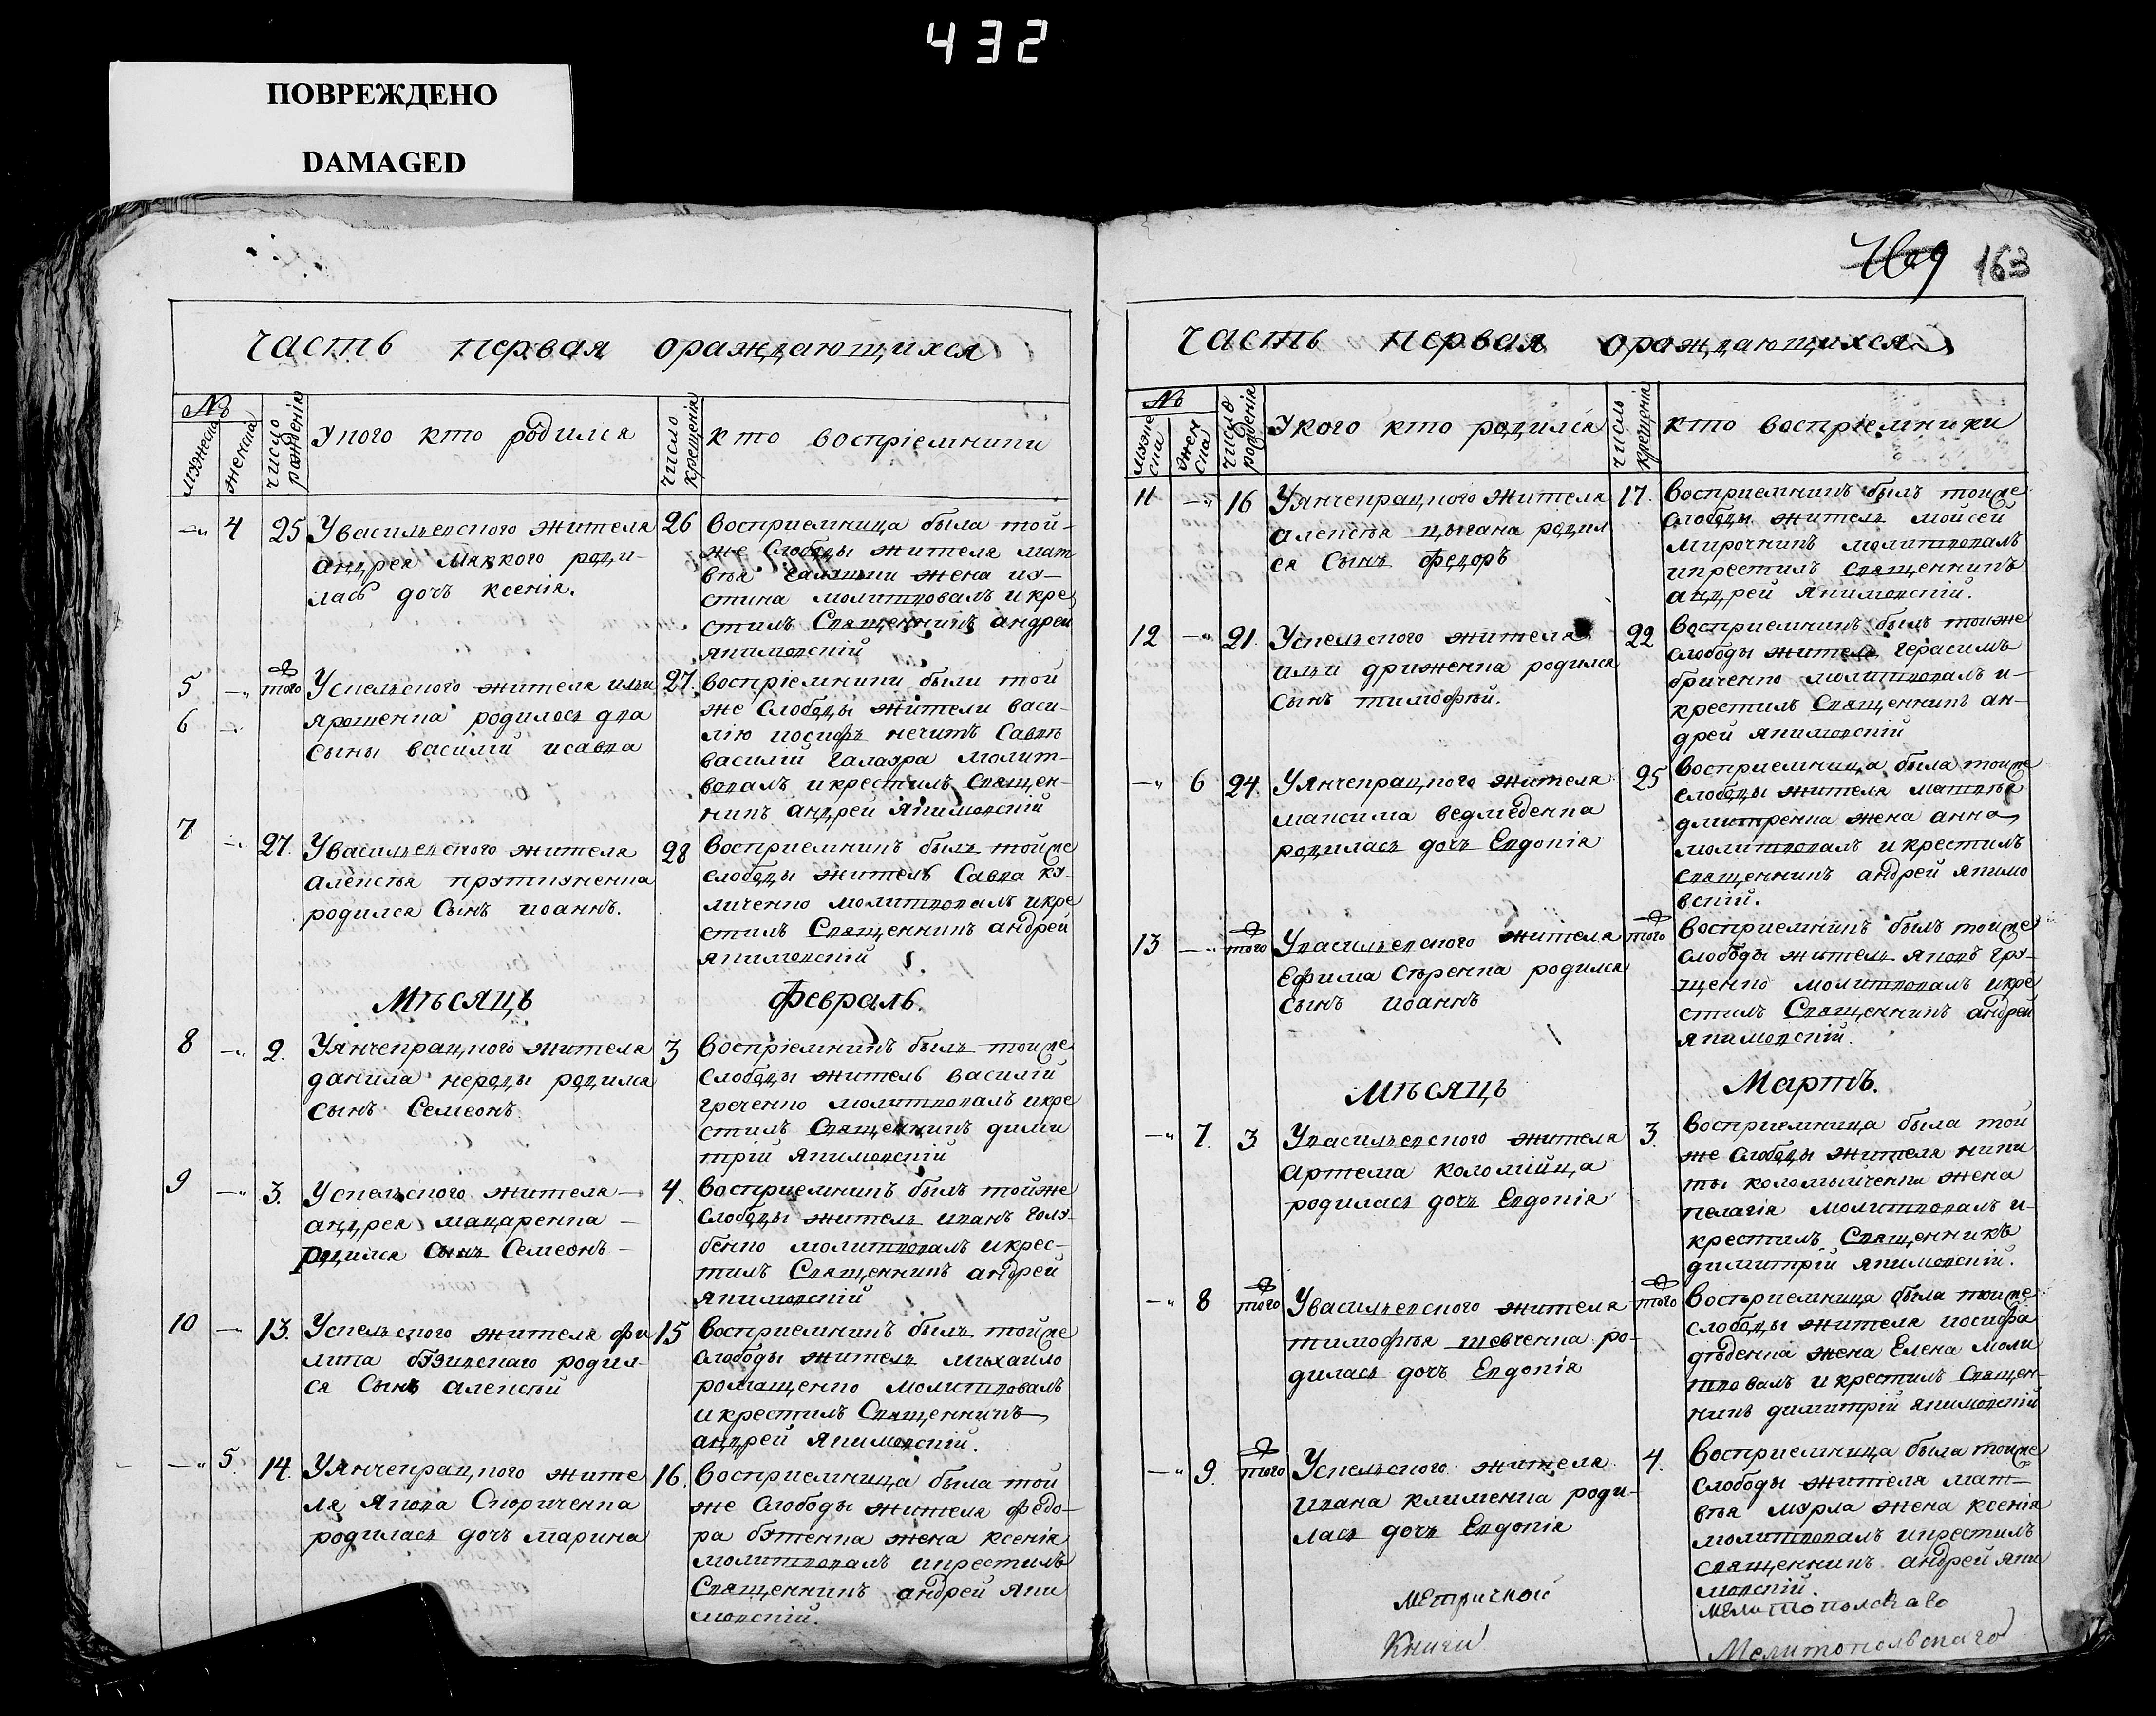 432
ПОВРЕЖДЕНО
DAMAGED
163
Часть первая ораждающихся
№
мужеска
женска
число рожденія
Укого кто родился
число крещенія
кто воспріемники
4 25 26
Увасильевского жителя
андрея Мяккого роди-
лась дочь ксенія.
восприемница была той-
же Слободы жителя мат
вѣя жена иу-
стина молитвовалъ икре
стилъ Священникъ андрей
якимовскій
5 6 того 27.
Успельского жителя ильи
ярошенка родилось два
сыны василій исавва
воспріемники были той
же Слободы жители васи-
лію иосифъ нечитъ Саввѣ
василій Галагра молит-
вовалъ икрестилъ Священ-
никъ андрей Якимовскій
7 27. 28
Увасильевского жителя
алексѣя
родился Сынъ иоаннъ.
восприемникъ былъ тойже
слободы житель Савва ку-
личенко молитвовалъ икре
стилъ Священникъ андрей
якимовскій
Мѣсяцъ февраль.
8 2. 3
Уянчекрацкого жителя
данила нероды родился
сынъ Семеонъ
воспріемникъ былъ тойже
Слободы житель василій
греченко молитвовалъ икре
стилъ Священникъ дими
трій якимовскій
9 3. 4.
Успельского жителя
андрея макаренка
родился Сынъ Семеонъ
восприемникъ былъ тойже
Слободы житель иванъ голу-
бенко молитвовалъ икрес-
тилъ Священникъ андрей
якимовскій
10 13. 15
Успельского жителя фи
липа родил-
ся Сынъ алексѣй
восприемникъ былъ тойже
Слободы житель михаило
ромащенко молитвовалъ
икрестилъ Священникъ
андрей якимовскій.
5. 14. 16.
Уянчекрацкого жите
ля якова Скориченка
родилась дочь марина
восприемница была той
же Слободы жителя федо-
ра бутенка жена ксенія
молитвовалъ икрестилъ
Священникъ андрей яки
мовскій.
Часть первая ораждающихся
№
мужеска
женска
число рожденія
Укого кто родился
число крещенія
кто воспріемники
11 16 17.
Уянчекрацкого жителя
алексѣя цыгана родил
ся Сынъ федоръ
восприемникъ былъ тойже
слободы житель мойсей
мирочникъ молитвовалъ
икрестилъ Священникъ
андрей якимовскій.
12 21. 22
Успельского жителя
ильи дриженка родился
Сынъ тимофѣй.
восприемникъ былъ тойже
слободы житель герасимъ
бриченко молитвовалъ и-
крестилъ Священникъ ан-
дрей якимовскій
6 24. 25
Уянчекрацкого жителя
максима ведмеденка
родилась дочь Евдокія
восприемница была тойже
слободы жителя матвѣя
дмитренка жена анна
молитвовалъ и крестилъ
священникъ андрей якимо
вскій.
13 того того
Увасильевского жителя
Ефима Сѣренка родился
Сынъ иоаннъ
восприемникъ былъ тойже
слободы житель яковъ гру-
щенко молитвовалъ икре
стилъ Священникъ андрей
якимовскій.
Мѣсяцъ Мартъ.
7. 3 3.
Увасильевского жителя
Артема коломійца
родилась дочь Евдокія
восприемница была той
же слободы жителя ники
ты коломыйченка жена
пелагія молитвовалъ и-
крестилъ Священникъ
димитрій якимовскій.
8 того того
Увасильевского жителя
тимофѣя шевченка ро-
дилась дочь Евдокія
восприемница была тойже
слободы жителя иосифа
дѣденка жена Елена моли
твовалъ икрестилъ Священ-
никъ димитрій якимовскій
9. того 4.
Успельского жителя
ивана клименка роди-
лась дочь Евдокія
восприемница была тойже
Слободы жителя мат-
вѣя мурла жена ксенія
молитвовалъ икрестилъ
священникъ андрей яки
мовскій.
Метрической
Мелитополскаго
Книги
Мелитопольскаго